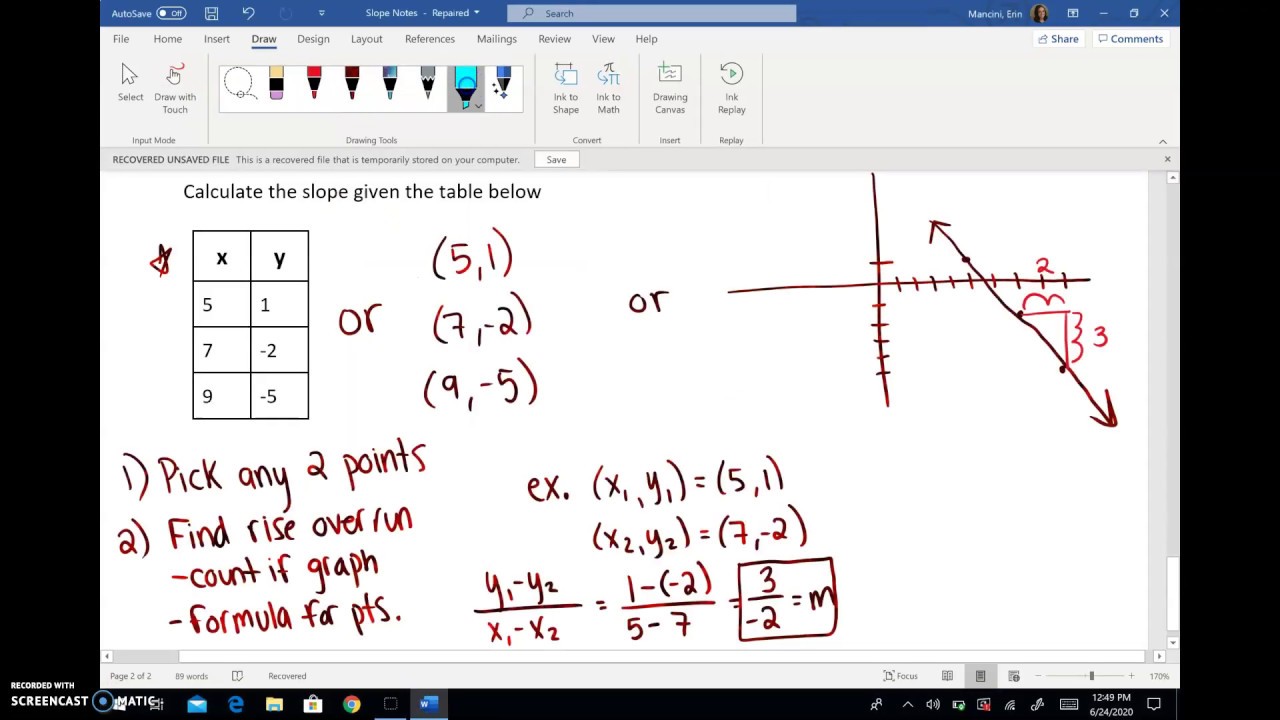 AutoSave Off Slope Notes - Repaired Search Mancini, Erin
File Home Insert Draw Design Layout References Mailings Review View Help Share Comments
Select Draw with Touch Ink to Shape Ink to Math Drawing Canvas Ink Replay
Input Mode Drawing Tools Convert Insert Replay
RECOVERED UNSAVED FILE This is a recovered file that is temporarily stored on your computer. Save
Calculate the slope given the table below
x y
5 1
7 -2
9 -5
or
(5,1)
(7,-2)
(9,-5)
or
2
3
1) Pick any 2 points
2) Find rise over run
-count if graph
-formula for pts.
ex. (x₁, y₁) = (5,1)
(x₂, y₂) = (7,-2)
y₁-y₂ 1-(-2) 3
= = = m
x₁-x₂ 5-7 -2
Page 2 of 2 89 words Recovered Focus 170%
RECORDED WITH
SCREENCAST MATIC
12:49 PM
6/24/2020